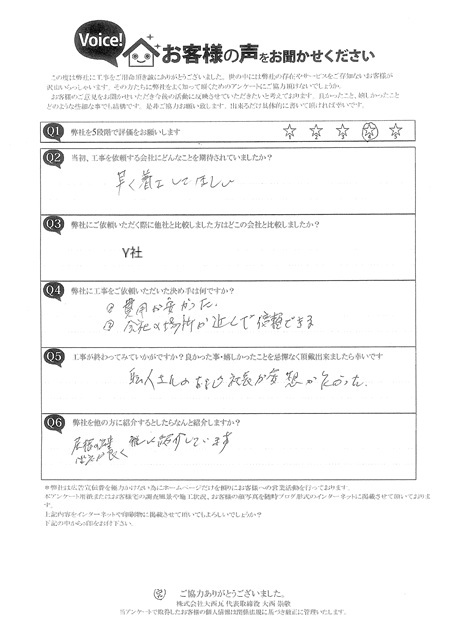 Voice!
お客様の声をお聞かせください
この度は弊社に工事をご用命頂き誠にありがとうございました。世の中には弊社の存在やサービスをご存知ないお客様が
沢山いらっしゃいます。その方たちに弊社をよく知って頂くためのアンケートにご協力頂けないでしょうか。
お客様のご意見をお聞かせいただき今後の活動に反映させていただきたいと考えております。良かったこと、嬉しかったこと
どのような些細な事でも結構です。是非ご協力お願い致します。出来るだけ具体的に書いて頂ければ幸いです。
Q1 弊社を5段階で評価をお願いします
1 2 3 4 5
Q2 当初、工事を依頼する会社にどんなことを期待されていましたか？
早く着工してほしい
Q3 弊社にご依頼いただく際に他社と比較しました方はどこの会社と比較しましたか？
V社
Q4 弊社に工事をご依頼いただいた決め手は何ですか？
① 費用が安かった
② 会社の場所が近くで信頼できる
Q5 工事が終わってみていかがですか？良かった事・嬉しかったことを忌憚なく頂戴出来ましたら幸いです
社長が愛想が良かった。
Q6 弊社を他の方に紹介するとしたらなんと紹介しますか？
紹介しています
＊弊社は広告宣伝費を極力かけない為にホームページだけを頼りにお客様への営業活動を行っております。
本アンケート用紙またはお客様宅の調査風景や施工状況、お客様の顔写真を随時ブログ形式のインターネットに掲載させて頂いております。
上記内容をインターネットや印刷物に掲載させて頂いてもよろしいでしょうか？
下記の中から○印をお付け下さい。
ご協力ありがとうございました。
株式会社大西瓦 代表取締役 大西
当アンケートで取得したお客様の個人情報は関係法規に基づき厳正に管理いたします。